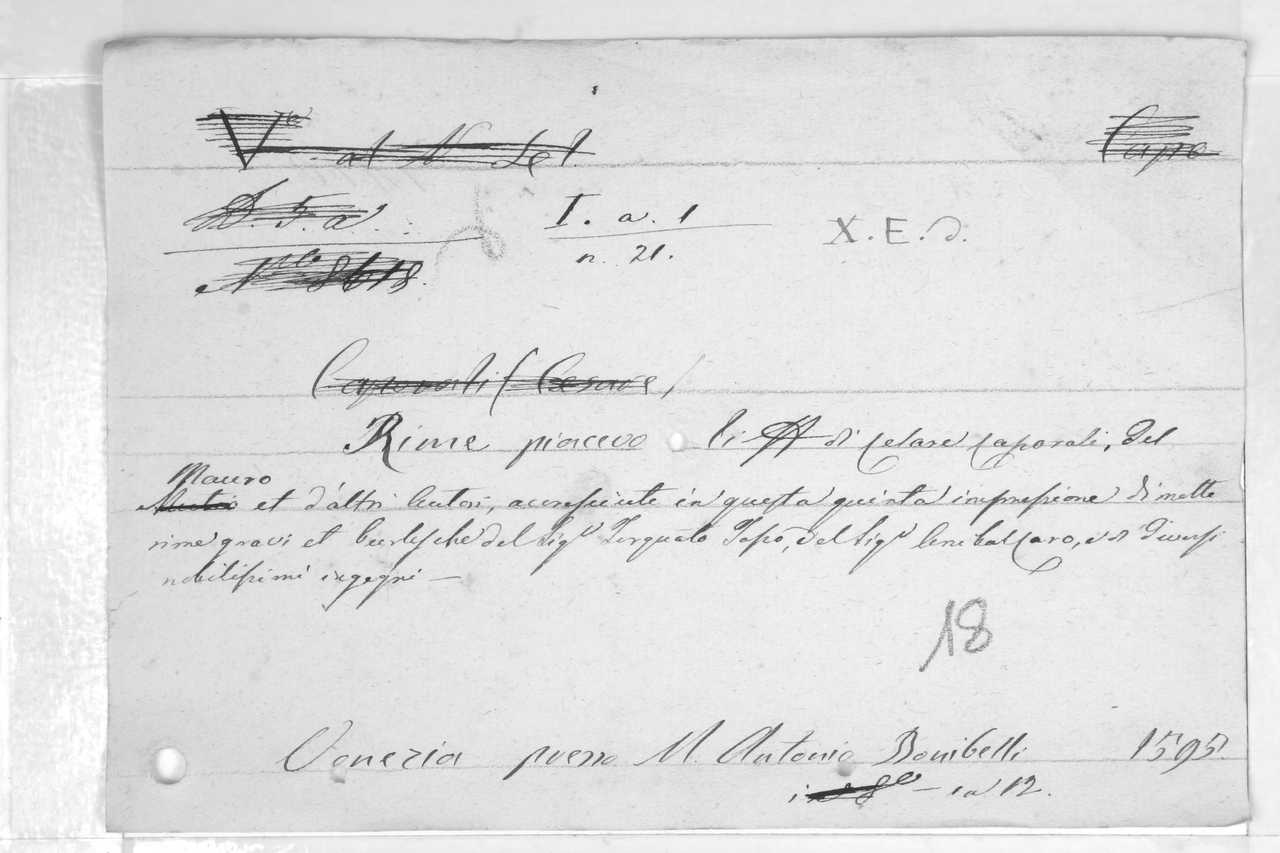 V at N Sel. Capo
D. 5. a. I. a. 1 X.E.d.
N 8618. n. 21.
Caporali (Cesare)
Rime piacevoli di Cesare Caporali, del
Mauro
et d'altri Autori, accresciute in questa quinta impressione di molte
rime gravi et burlesche del Sigr Torquato Tasso, del Sigr Anibal Caro, e di diversi
nobilissimi ingegni —
18
Venezia presso M. Antonio Bonibelli 1595.
in 8º — in 12.